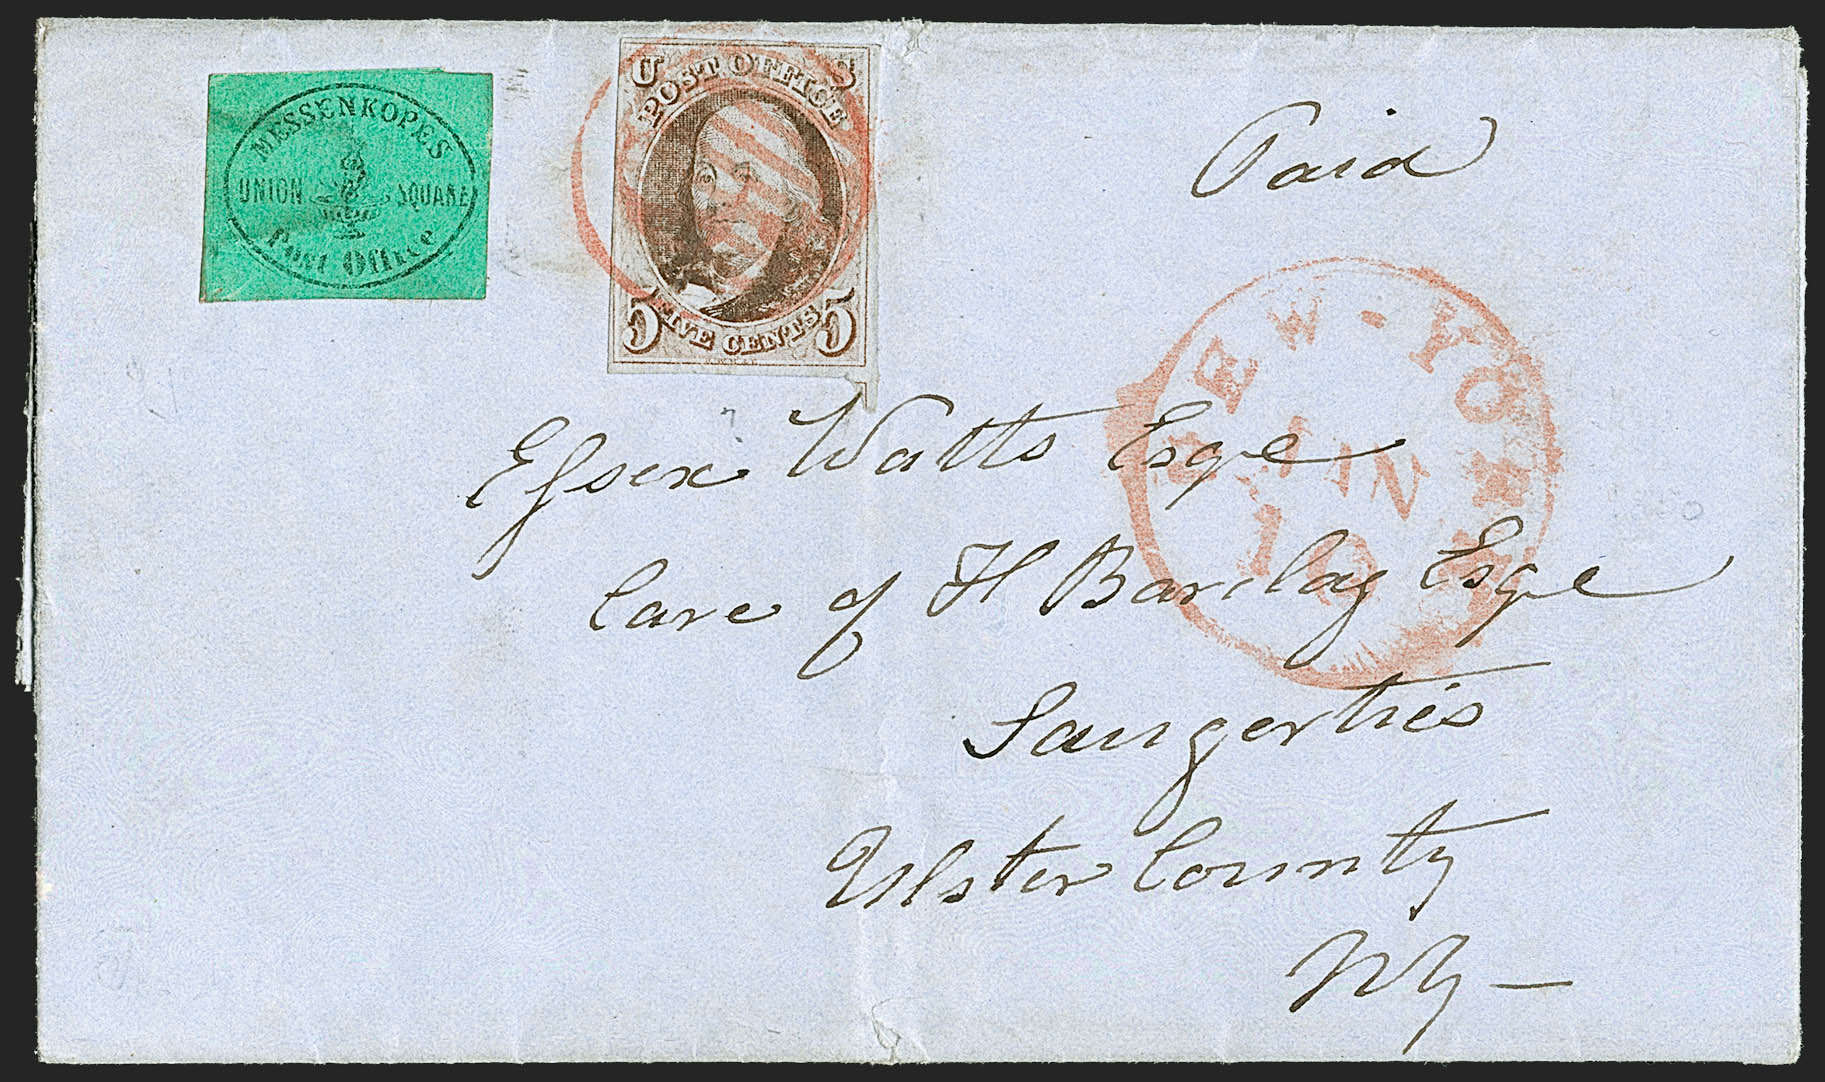 MESSENKOPES
UNION SQUARE
Post Office
U S
POST OFFICE
5 FIVE CENTS 5
Paid
NEW-YORK
JAN
10
Essex Watts Esqe
Care of H Barclay Esqe
Saugerties
Ulster County
NY—